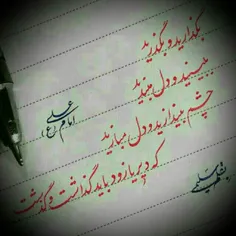 بگذارید و بگذرید
ببینید و دل نبندید
چشم بیندازید و دل مبازید
که دیر یا زود باید گذاشت و گذشت
امام علی (ع)